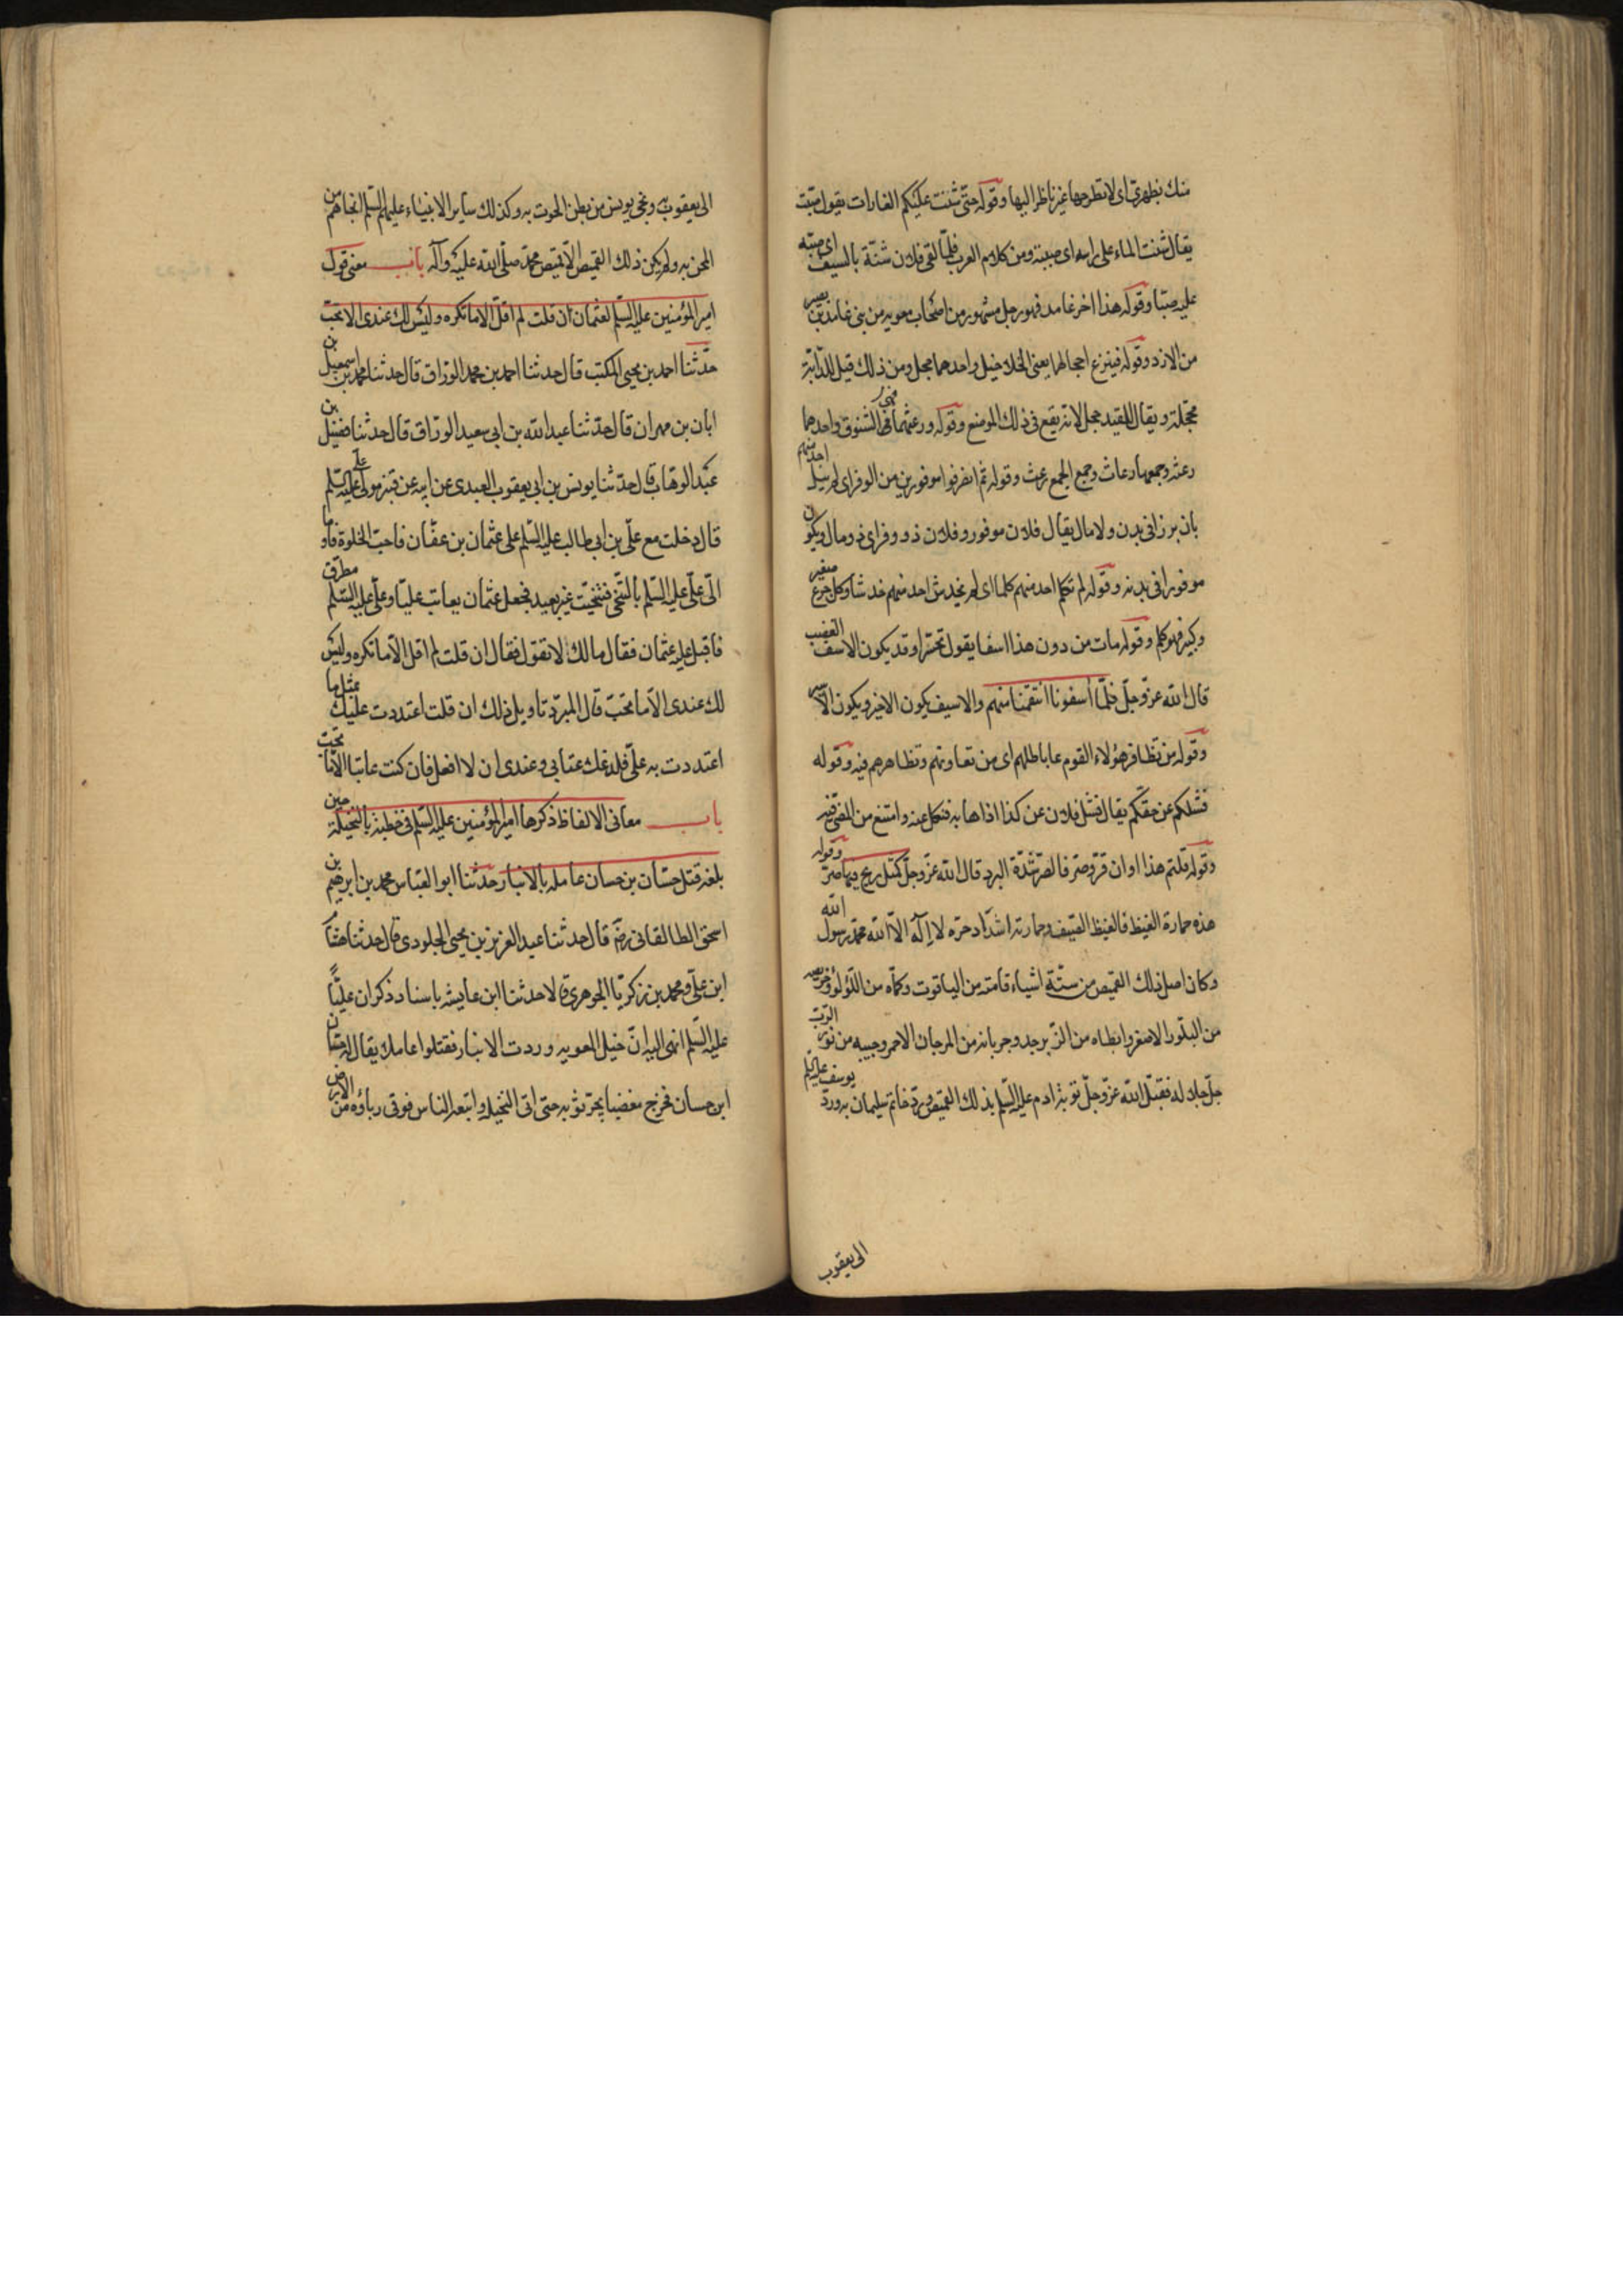 منك بظهري اى لا تطرحها غير ناظر اليها وقوله حتى شنت عليكم الغارات يقول صبّت
يقال شننت الماء على راسه اى صببته ومن كلام العرب فلما لقى فلان شنّة بالسيف اى صبّه
عليه صبّا وقوله هذا اخو غامد فهو رجل مشهور من اصحاب معويه من بنى غامد بن نصر
من الازد وقوله فينزع احجالهما يعنى الخلاخيل واحدهما حجل ومن ذلك قيل للدابّة
محجّلة ويقال للقيد حجل لانه يقع فى ذلك الموضع وقوله ورعثهما فهى الشنوف واحدها
رعثه وجمعها رعاث وجمع الجمع رعث وقوله ثم انصرفوا موفورين من الوفر اى لم ينل احد منهم
بان يرزا فى بدن ولا مال يقال فلان موفور وفلان ذو وفر اى ذو مال ويكون
موفورا فى بدنه وقوله لم يكلم احد منهم كلما اى لم يخدش احد منهم خدشا وكل جرح صغير
وكبير فهو كلم وقوله مات من دون هذا اسفا يقول تحسّرا وقد يكون الاسف الغضب
قال الله عزّ وجلّ فلمّا آسفونا انتقمنا منهم والاسيف يكون الاجير ويكون الاسير
وقوله من تظافر هؤلاء القوم على باطلهم اى من تعاونهم وتظاهرهم فيه وقوله
فشلكم عن حقّكم يقال فشل فلان عن كذا اذا هابه فنكل عنه وامتنع من المضىّ فيه
وقوله قلتم هذا اوان قرّ وصرّ فالصرّ شدّة البرد قال الله عزّ وجلّ كمثل ريح فيها صرّ وقوله
هذه حمارة القيظ فالقيظ الصيف وحمارته اشتداد حرّه لا إله الّا الله محمد رسول الله
وكان اصل ذلك القميص من ستّة اشياء قامته من الياقوت وكمّاه من اللؤلؤ ودخريصه
من البلّور الاصفر وابطاه من الزبرجد وجربانه من المرجان الاحمر وجيبه من نور الربّ
جلّ جلاله فقبل الله عزّ وجلّ توبة ادم عليه السلم بذلك القميص وردّ خاتم سليمان به وردّ يوسف عليه السلم
الى يعقوب
الى يعقوب به ونجى يونس من بطن الحوت به وكذلك ساير الانبياء عليهم السلم انجاهم من
المحن به ولم يكن ذلك القميص الا قميص محمد صلى الله عليه وآله باب معنى قول
امير المؤمنين عليه السلم لعثمان ان قلت لم اقل الا ما تكره وليس لك عندى الا ما تحبّ
حدّثنا احمد بن يحيى المكتب قال حدثنا احمد بن محمد الورّاق قال حدثنا محمد بن اسمعيل بن
ابان بن مهران قال حدّثنا عبد الله بن ابى سعيد الورّاق قال حدثنا فضيل بن
عبد الوهاب قال حدّثنا يونس بن ابى يعقوب العبدى عن ابيه عن قنبر مولى على عليه السلم
قال دخلت مع علىّ بن ابى طالب عليه السلم على عثمان بن عفّان فاحبّ الخلوة فاوما
الىّ علىّ عليه السلم بالتنحّى فتنحّيت غير بعيد فجعل عثمان يعاتب عليّا وعلىّ عليه السلم مطرق
فاقبل عليه عثمان فقال ما لك لا تقول فقال ان قلت لم اقل الّا ما تكره وليس
لك عندى الّا ما تحبّ قال المبرّد تاويل ذلك ان قلت اعتددت عليك بمثل ما
اعتددت به علىّ فلدغك عتابى وعندى ان لا افعل فان كنت عاتبا الّا ما تحبّ
باب معانى الالفاظ ذكرها امير المؤمنين عليه السلم فى خطبته بالنخيلة حين
بلغه قتل حسّان بن حسان عامله بالانبار حدثنا ابو العبّاس محمد بن ابرهيم بن
اسحق الطالقانى رضى قال حدثنا عبد العزيز بن يحيى الجلودى قال حدثنا هشام
ابن علىّ ومحمد بن زكريّا الجوهرى قالا حدثنا ابن عايشه باسناد ذكر ان عليّاً
عليه السلم انهى اليه انّ خيلا لمعويه وردت الانبار فقتلوا عاملا له يقال له حسّان
ابن حسان فخرج مغضبا يجرّ ثوبه حتى اتى النخيلة واتبعه الناس فرقى رباوة من الارض